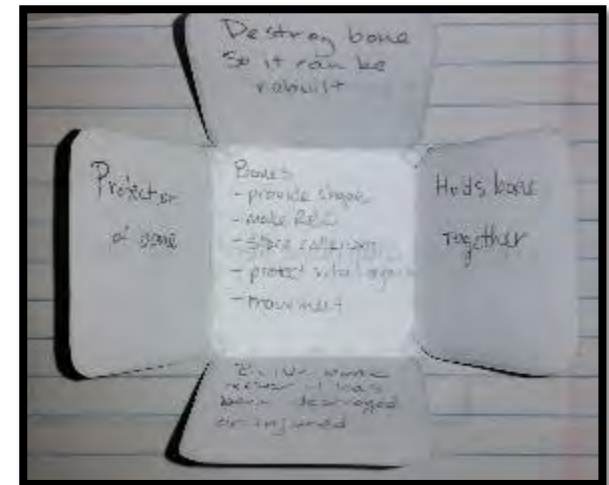 Destroy bone
So it can be
rebuilt
Protector
of bone
Bones
- provide shape
- make RBC
- store calcium
- protect vital organs
- movement
Holds bone
Together
bone
after it has
been destroyed
or injured